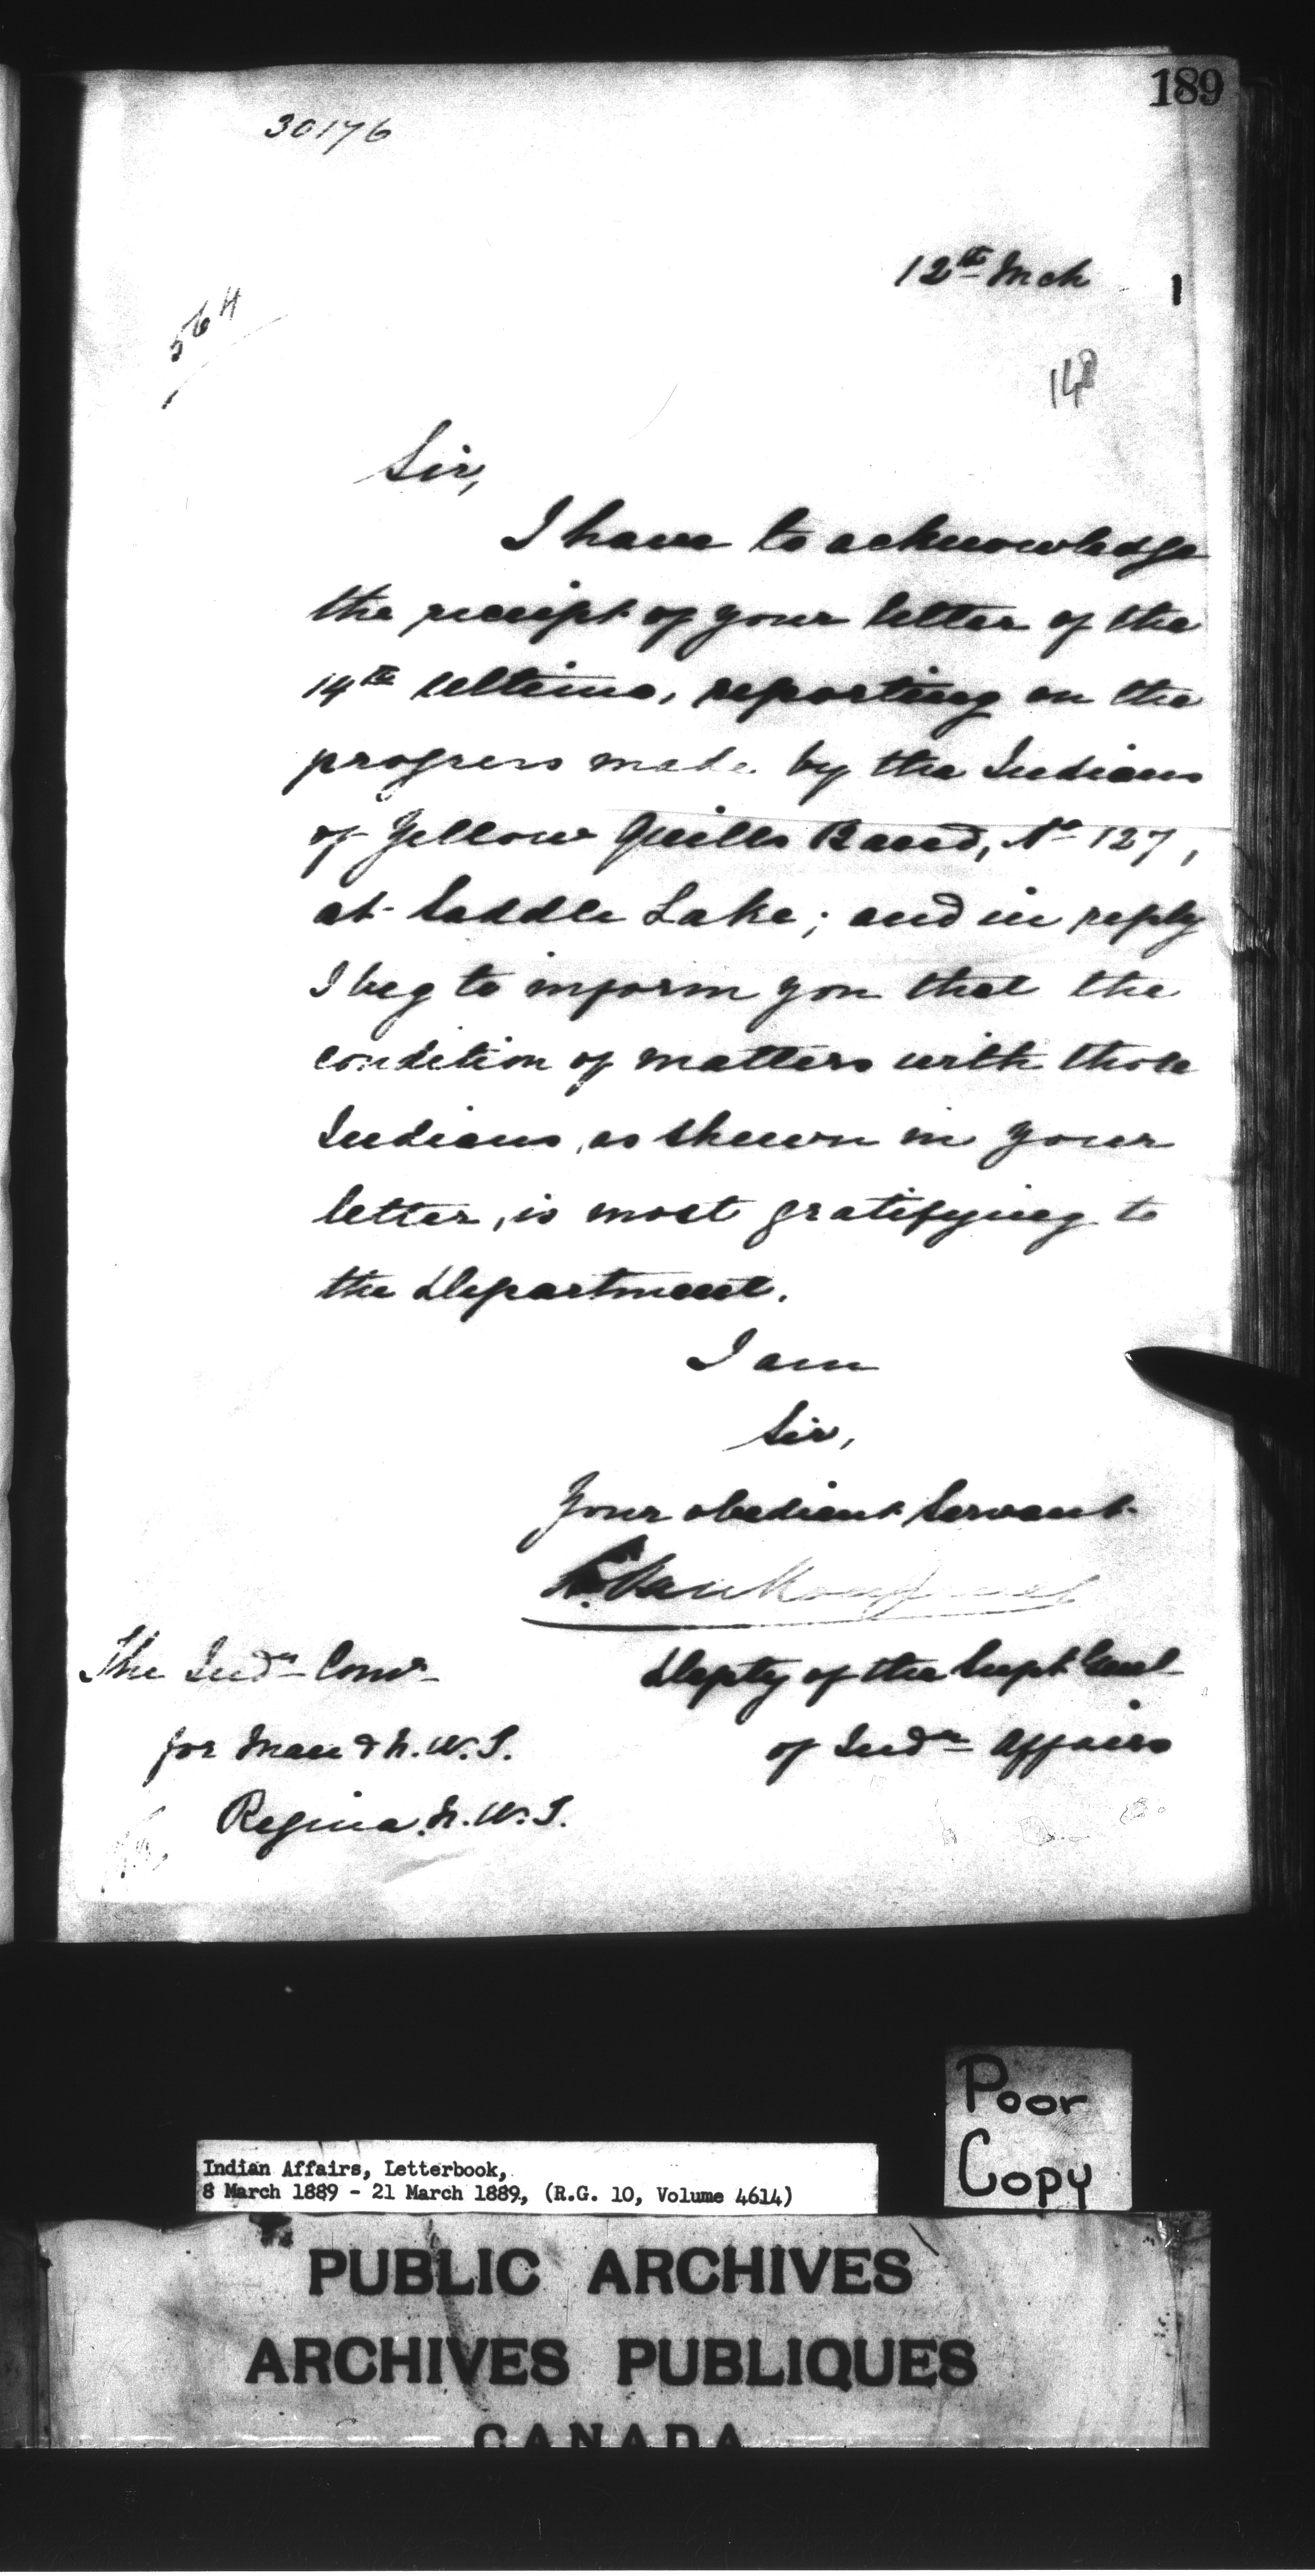 189
30176
12th Mch
564
148
Sir,
I have to acknowledge
the receipt of your letter of the
14th ultimo, reporting on the
progress made by the Indians
of Yellow Quills Band, No 127,
at Saddle Lake; and in reply
I beg to inform you that the
condition of matters with those
Indians, as shewn in your
letter, is most gratifying to
the Department.
I am
Sir,
Your obedient Servant
L. VanKoughnet
The Indn Comr
Depty of the Supt Genl
for Man & N.W.T.
of Indn Affairs
Regina, N.W.T.
Poor
Copy
Indian Affairs, Letterbook,
8 March 1889 - 21 March 1889, (R.G. 10, Volume 4614)
PUBLIC ARCHIVES
ARCHIVES PUBLIQUES
CANADA